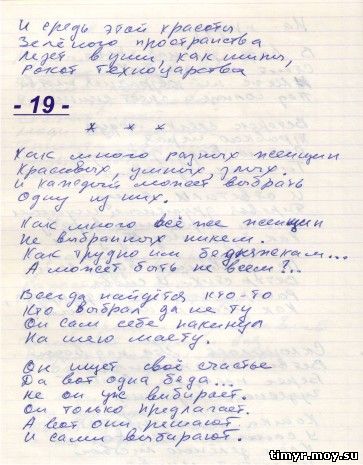 И средь этой красоты
Зелёного пространства
Лезет в уши, как шипы,
Рокот техноцарства
- 19 -
* * *
Как много разных женщин
Красивых, умных, злых.
И каждый может выбрать
Одну из них.
Как много всё же женщин
Не выбранных никем.
Как трудно им бедняжкам...
А может быть не всем?..
Всегда найдётся кто-то
Кто выбрал да не ту
Он сам себе накинул
На шею маету.
Он ищет своё счастье
Да вот одна беда...
Не он уж выбирает.
Он только предлагает.
А вот они решают
И сами выбирают.
timyr.moy.su